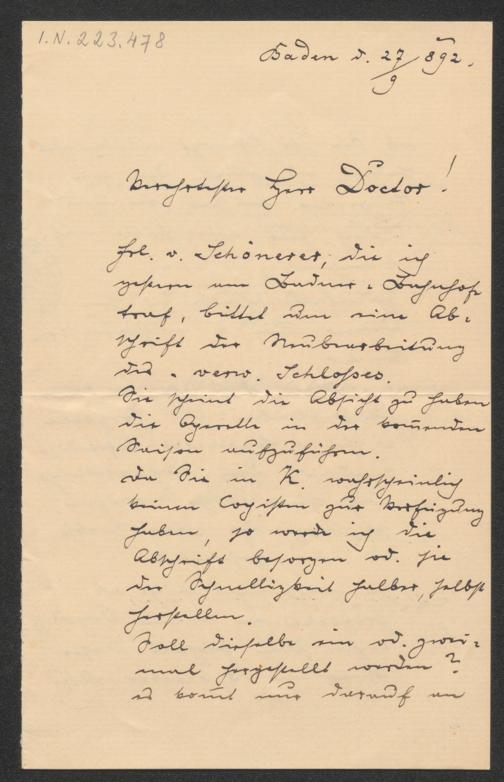 I.N. 223.478
Baden d. 27/9 892.
Verehrtester Herr Doctor!
Frl. v. Schönerer, die ich
gestern am Badner-Bahnhof
traf, bittet um eine Ab-
schrift der Neubearbeitung
des "verw. Schlosses.
Sie scheint die Absicht zu haben
die Operette in der kom̅enden
Saison aufzuführen.
Da Sie in K. wahrscheinlich
keinen Copisten zur Verfügung
haben, so werde ich die
Abschrift besorgen od. sie
der Schnelligkeit halber, selbst
herstellen.
Soll dieselbe ein od. zwei-
mal hergestellt werden?
es kom̅t nur darauf an